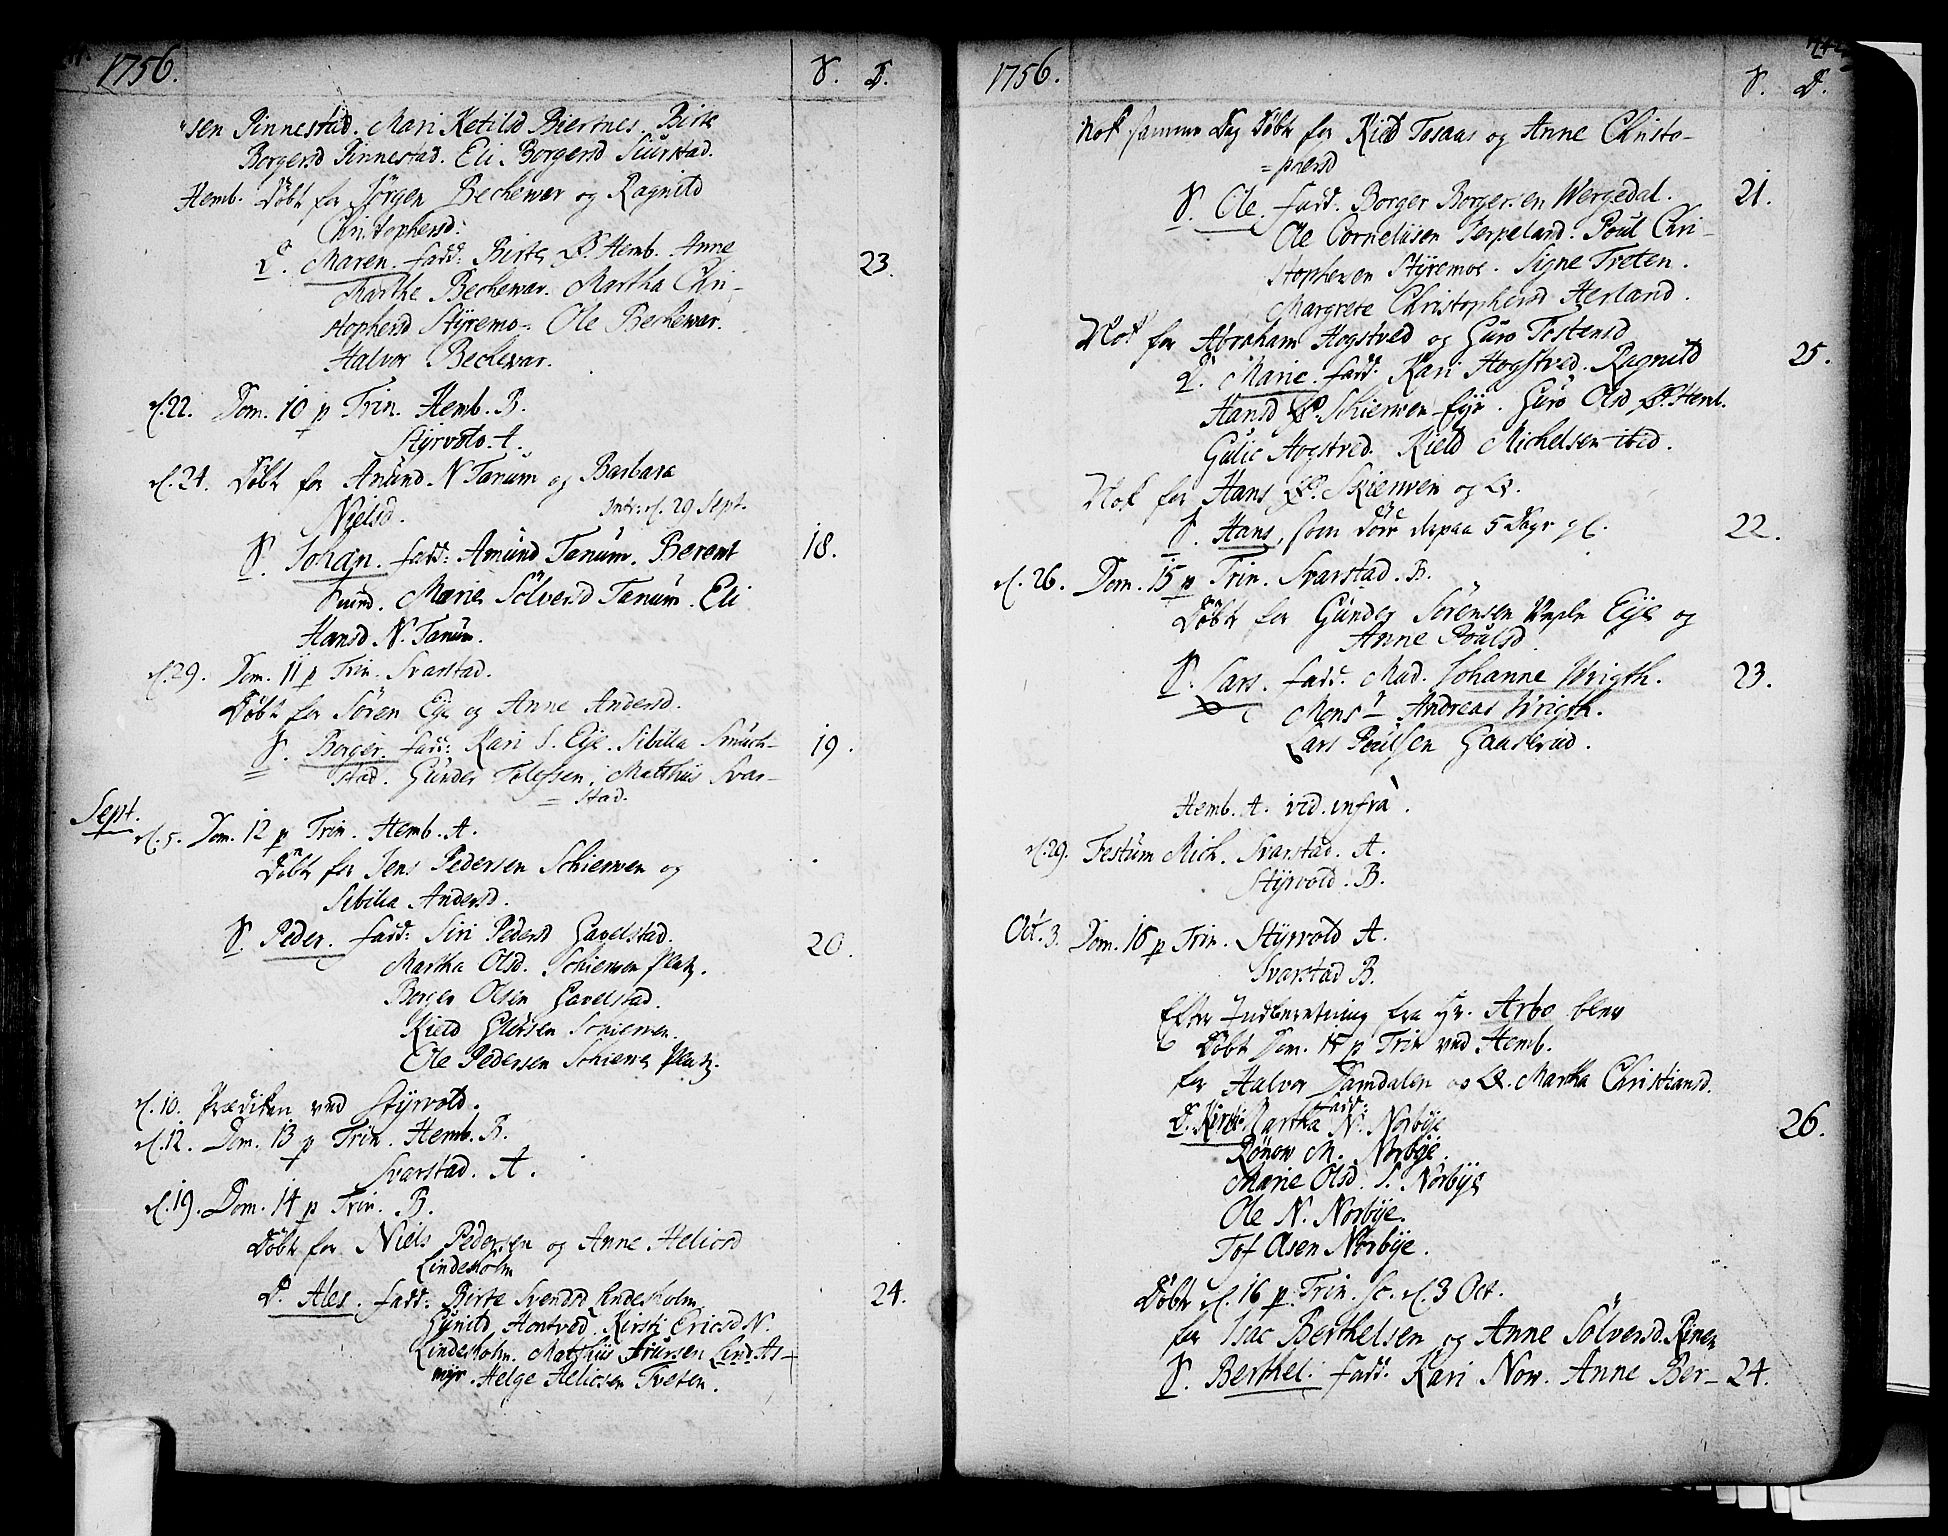 1756. S. D.
sen Pinnestad. Mari Ketilsd Biertnes. Birte
Borgersd Pinnestad. Eli Borgersd Siurstad.
Hemb. Döbt for Jörgen Beckewar og Ragnild
Christophersd:
D. Maren. fadd: Birte Hemb. Anne
Marthe Beckewar. Martha Chri-
stophersd Styremo. Ole Beckewar.
Halvor Beckewar.
23.
d. 22. Dom. 10 p Trin. Hemb. B.
Styrvold. A.
d. 24. Döbt for Amund N Tanum og Barbara
Nielsd. Intr: d. 29 Sept.
S. Johan. fadd: Amund Tanum. Berent
Marie Sölversd Tanum. Eli
Hansd N. Tanum.
18.
d. 29. Dom. 11 p Trin. Svarstad.
Döbt for Sören Eye og Anne Andersd.
S. Borger. fadd: Kari S. Eye. Sibilla Smuch-
stad. Gunder Tolefsen. Matthiis Svar-
= stad.
19.
Sept.
d. 5. Dom. 12 p Trin. Hemb. A.
Döbt for Jens Pedersen Schierven og
Sibilla Andersd.
S. Peder. fadd: Siri Pedersd Gavelstad.
Martha Olsd. Schierven Platz.
Borger Olsen Gavelstad.
Kield Schierven.
Ole Pedersen Schierve Platz.
20.
d. 10. Prædiken ved Styrvold.
d. 12. Dom. 13 p Trin. Hemb. B.
Svarstad. A.
d. 19. Dom. 14 p Trin. B.
Döbt for Niels Pedersen og Anne Heliesd
Lindesholm
D. Ales. fadd: Birte Svendsd Lindesholm
Gunild Hontved. Kirsti Ericsd N.
Lindesholm. Matthiis
Helge Heliesen Tveten.
24.
1756. S. D.
Nok samme Dag Döbt for Kield Tosaas og Anne Christo-
= phersd
S. Ole. fadd: Borger Borgersen Wergedal.
Ole Cornelisen Terpeland. Poul Chri-
stophersen Styremoe. Signe Treten.
Margrete Christophersd Herland.
21.
Nok for Abraham Hogstved og Guro Tostensd
D. Marie. fadd: Kari Hogstved. Ragnild
Hansd Schierven Eye. Guro Olsd Hemb.
Gulic Hogstved. Kield Michelsen ibid.
25.
Nok for Hans Skierven og
S. Hans, som döde derpaa 5 Dage gl.
22.
d. 26. Dom. 15 p Trin. Svarstad. B.
Döbt for Gunder Sörensen Eye og
Anne Poulsd
S. Lars. fadd: Mad. Johanne Wrigth.
Monsr Andreas Wrigth.
Lars Poulsen Gaaserud.
23.
Hemb. A. vid. infra.
d. 29. Festum Mich. Svarstad. A.
Styrvold. B.
Oct. 3. Dom. 16 p Trin. Styrvold A.
Svarstad B.
Efter Indberetning fra Hr. Arbo blev
Döbt Dom. 15 p Trin ved Hemb.
for Halvor Damdalen og Martha Christiansd.
D. Kirsti. fadd: Martha N. Norbye
Rönow M. Norbye.
Marie Olsd. S. Norbye
Ole N. Norbye.
Tof Olsen Norbye.
26.
Döbt d. 16 p. Trin. sc. d. 3 Oct.
for Isac Berthelsen og Anne Sölversd Rinen
S. Berthel: fadd: Kari Now. Anne Ber-
24.